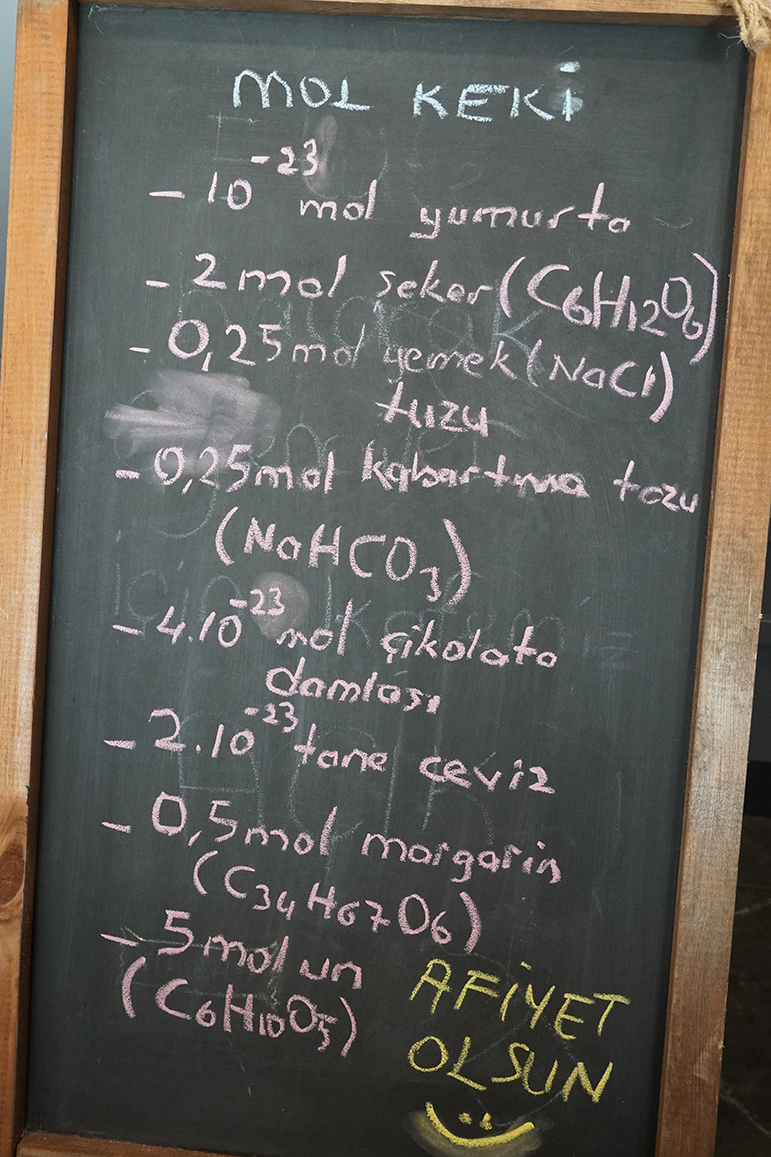 MOL KEKİ
- 10⁻²³ mol yumurta
- 2 mol şeker (C₆H₁₂O₆)
- 0,25 mol yemek (NaCl)
tuzu
- 0,25 mol kabartma tozu
(NaHCO₃)
- 4.10⁻²³ mol çikolata
damlası
- 2.10⁻²³ tane ceviz
- 0,5 mol margarin
(C₃₄H₆₇O₆)
- 5 mol un
(C₆H₁₀O₅)
AFİYET
OLSUN